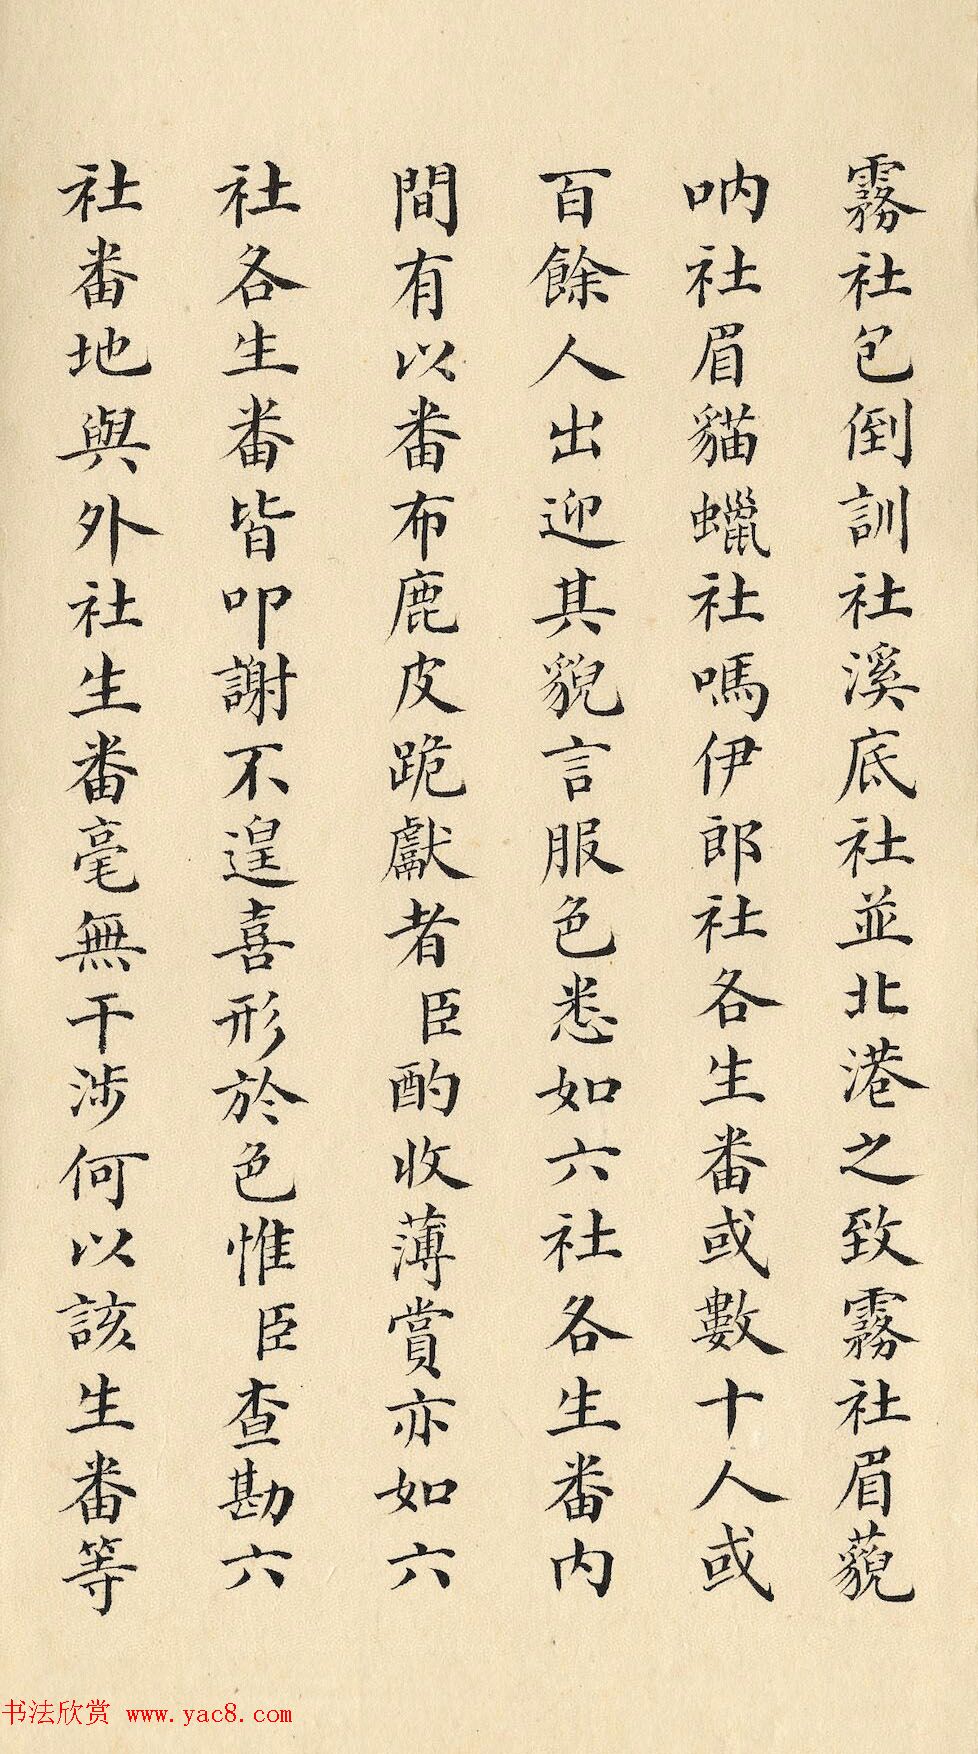 霧社包倒訓社溪底社並北港之致霧社眉藐
吶社眉貓蠟社嗎伊郎社各生番或數十人或
百餘人出迎其貌言服色悉如六社各生番內
間有以番布鹿皮跪獻者臣酌收薄賞亦如六
社各生番皆叩謝不遑喜形於色惟臣查勘六
社番地與外社生番毫無干涉何以該生番等
书法欣赏 www.yac8.com